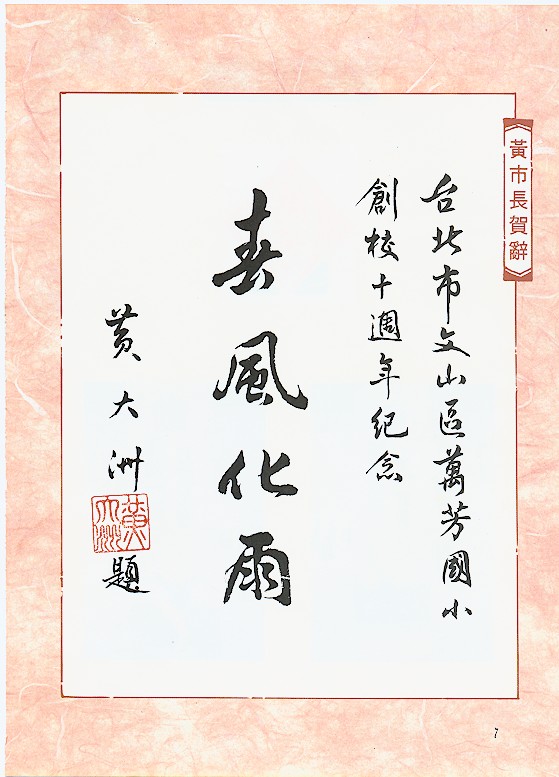 黃市長賀辭
台北市文山區萬芳國小
創校十週年紀念
春風化雨
黃大洲題
黃大洲
7